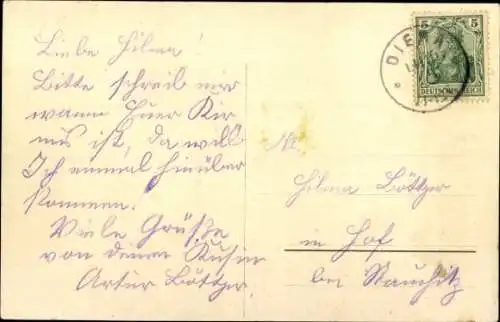 Liebe Hilma!
Bitte schreib mir
wann Euer Kir
mis ist, da will
Ich einmal hinüber
kommen.
Viele Grüße
von deinen Kusin
Artur Böttger.
5 5
DEUTSCHES REICH
DIE
An
Hilma Böttger
in Hof
bei Stauchitz